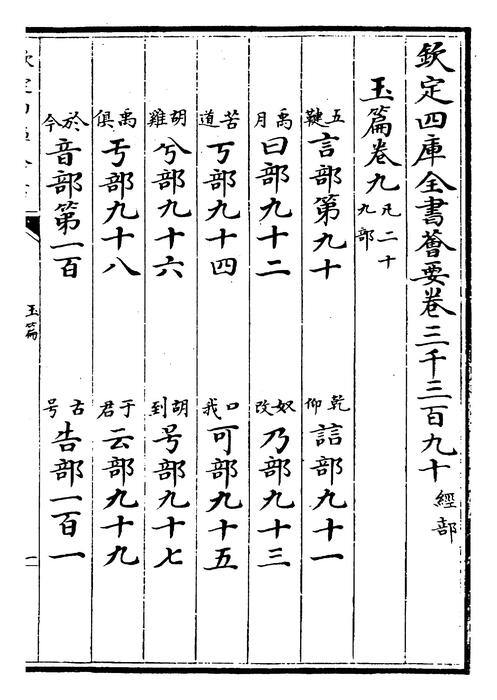 欽定四庫全書薈要卷三千三百九十 經部
玉篇卷九 凡二十九部
五鞬 言部第九十 乾仰 誩部九十一
禹月 曰部九十二 奴改 乃部九十三
苦道 丂部九十四 口我 可部九十五
胡雞 兮部九十六 胡到 号部九十七
禹俱 亐部九十八 于君 云部九十九
於今 音部第一百 古号 告部一百一
玉篇